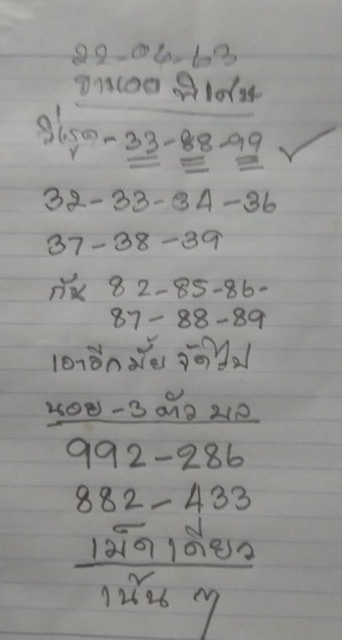 22-04-63
ฮานอย พิเศษ
วิ่งรูด-33-88-99
32-33-34-36
37-38-39
กัน 82-85-86-
87-88-89
เอาอีกมั้ย จัดไป
นอย-3 ตัว บล
992-286
882-433
เม็ดเดียว
เน้น ๆ